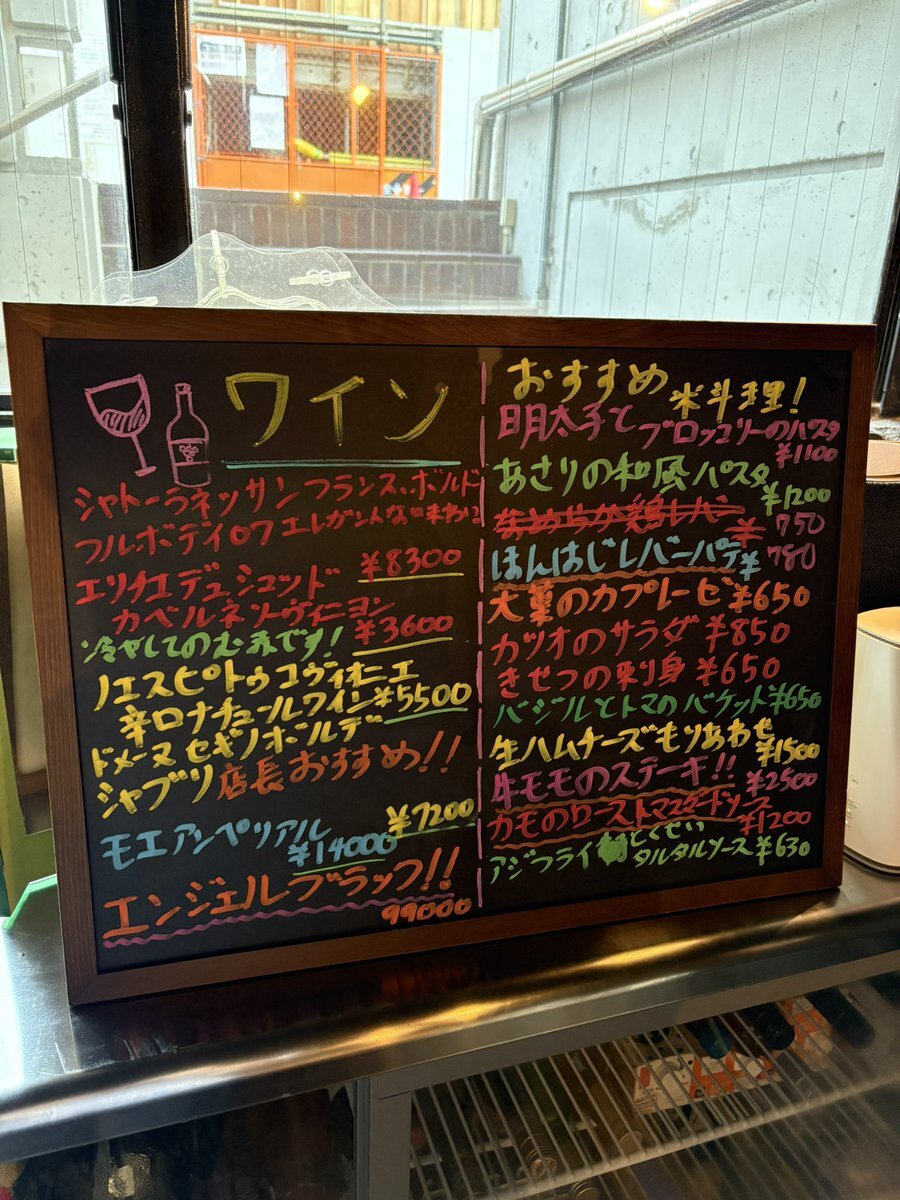 ワイン
シャトーラネッサン フランス、ボルドー
フルボディ ロワ エレガントな味わい
¥8300
エリチエデュシュッド
カベルネソーヴィニヨン
冷やしてのむ赤です!
¥3600
ノエスピトゥコヴィオニエ
辛口ナチュールワイン ¥5500
ドメーヌ セギノボールデ
シャブリ 店長おすすめ!!
¥7200
モエアンペリアル
¥14000
エンジェルブラック!!
99000
おすすめ
料理!
明太子と
ブロッコリーのパスタ
¥1100
あさりの和風パスタ
¥1200
なめらか鶏レバー ¥750
ほんはじレバーパテ ¥780
大葉のカプレーゼ ¥650
カツオのサラダ ¥850
きせつの刺身 ¥650
バジルとトマのバケット ¥650
生ハムチーズもりあわせ
¥1500
牛モモのステーキ!! ¥2500
カモのローストマスタードソース
¥1200
アジフライ とくせい
タルタルソース ¥630